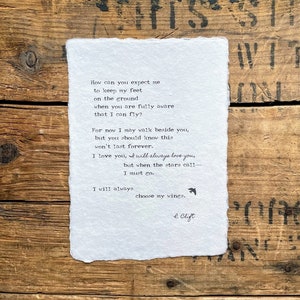 How can you expect me
to keep my feet
on the ground
when you are fully aware
that I can fly?
For now I may walk beside you,
but you should know this
won't last forever.
I love you, I will always love you,
but when the stars call—
I must go.
I will always
choose my wings.